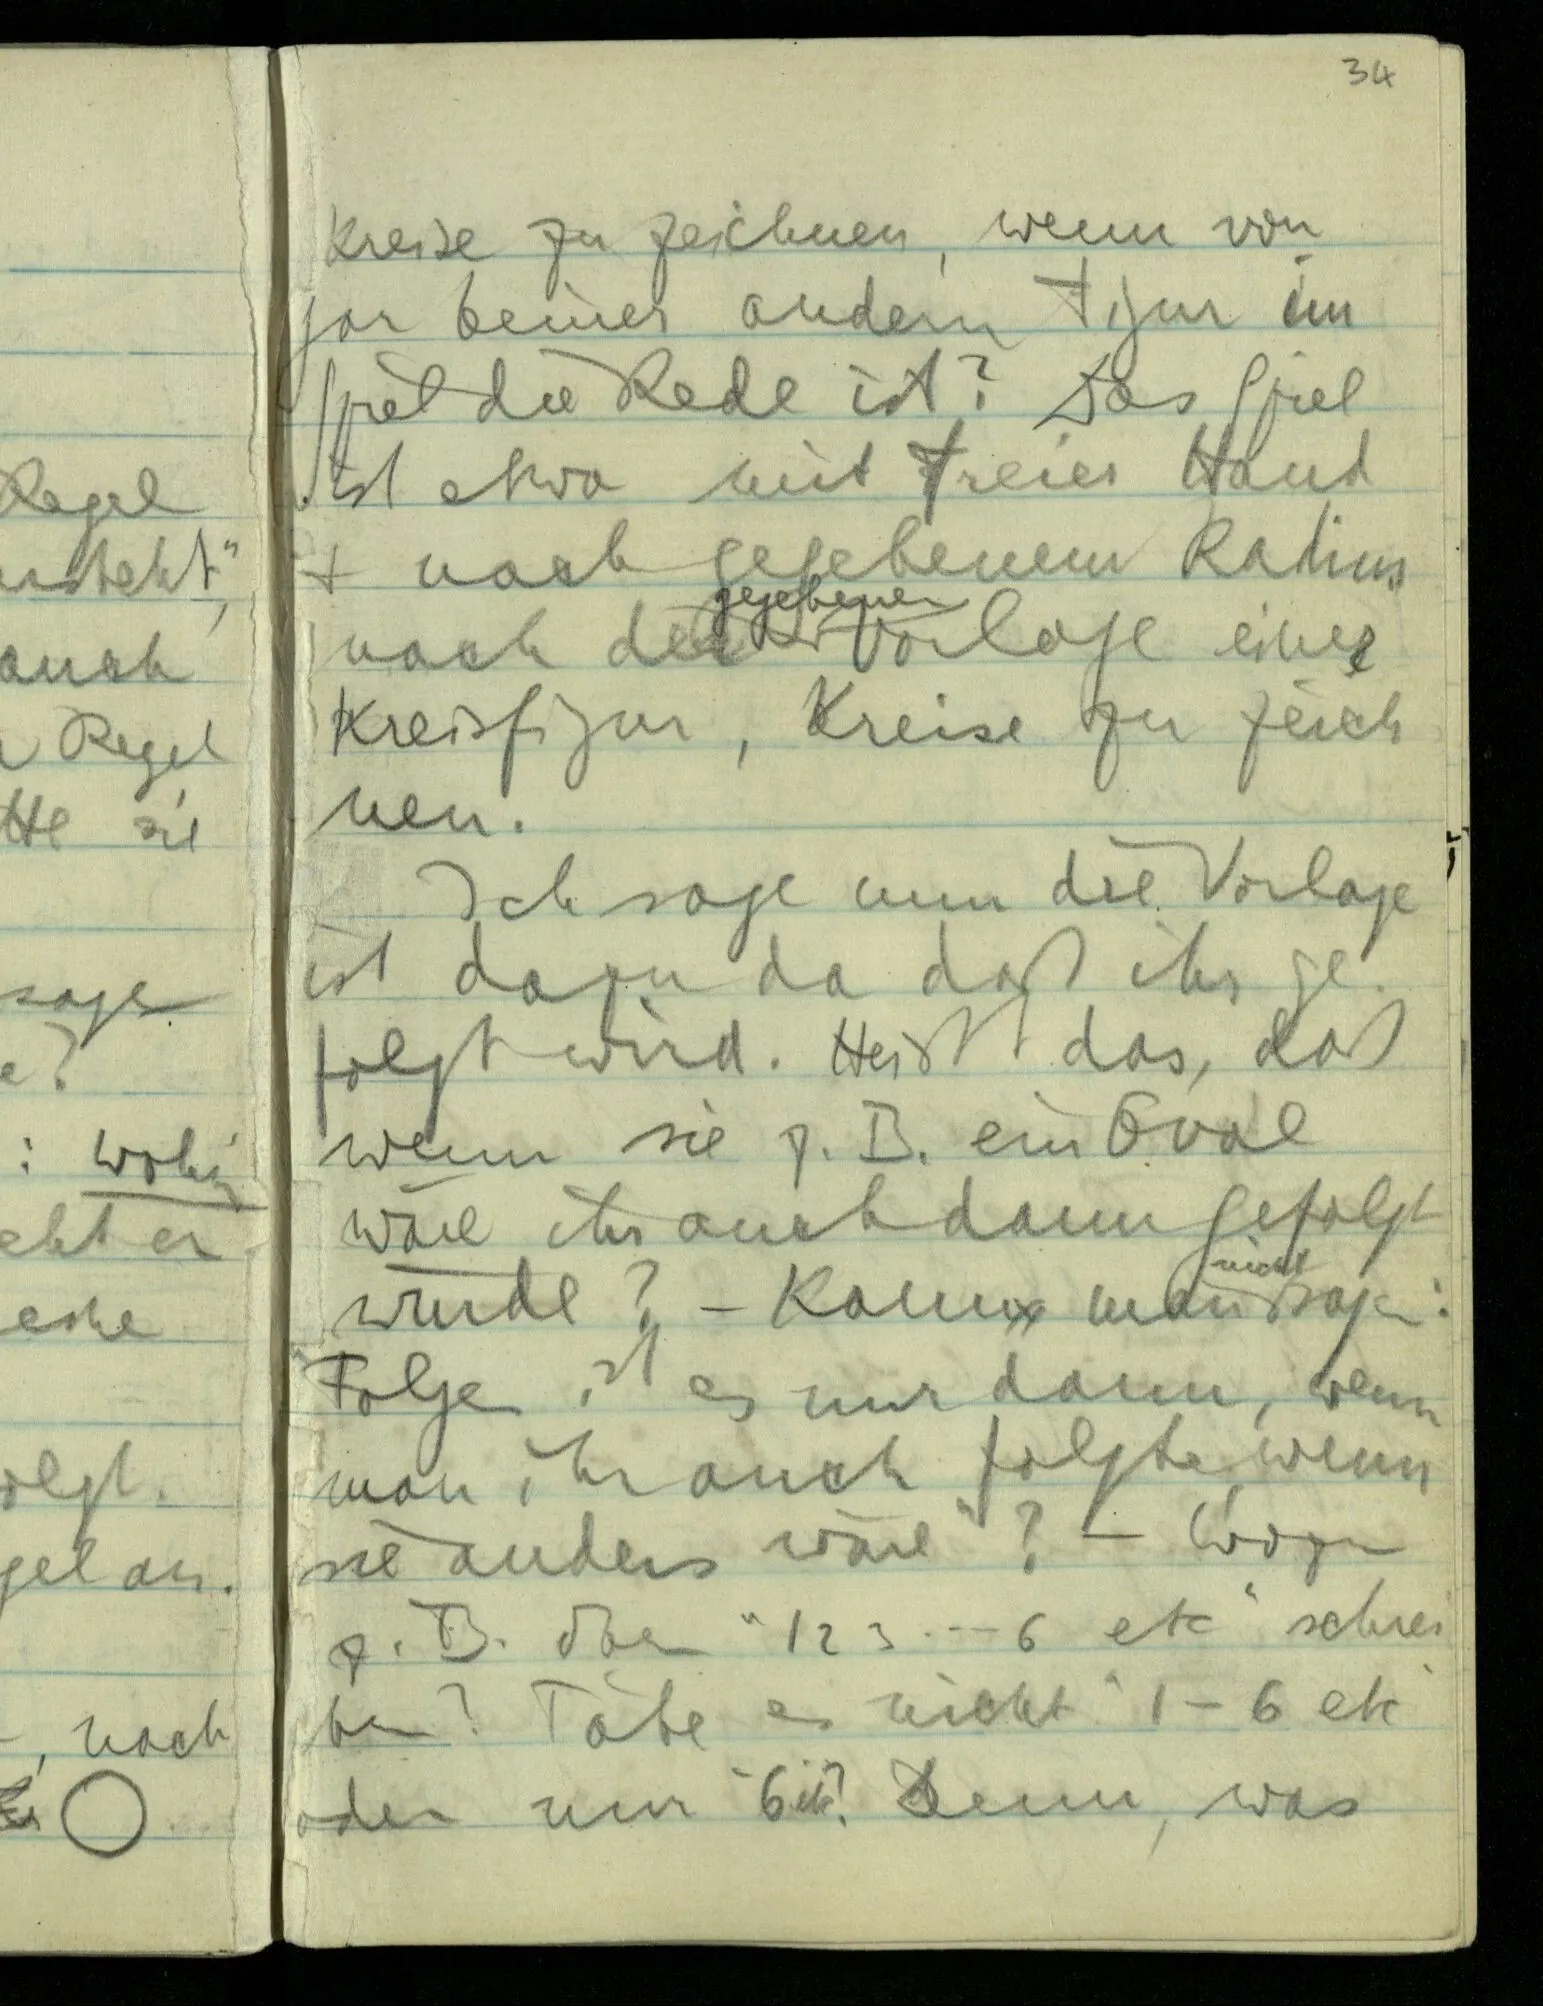 34
Regel
ansteht",
auch
Regel
sie
sage
e?
: wohin
er
olgt.
gel an.
, nach
Kreise zu zeichnen, wenn von
gar keiner andern Figur im
Spiel die Rede ist? Das Spiel
ist etwa mit freier Hand
+ nach gegebenem Radius
gegebenen
nach der Vorlage einer
Kreisfigur, Kreise zu zeich
nen.
Ich sage nun die Vorlage
ist dazu da daß ihr ge-
folgt wird. Heißt das, daß
wenn sie z. B. ein Oval
wäre ihr auch dann gefolgt
würde? – Kann man nicht sagen:
"Folgen ist es nur dann, wenn
man ihr auch folgte, wenn
sie anders wäre"? – Wozu
z. B. aber "1 2 3 ... 6 etc" schrei
ben? Täte es nicht "1 – 6 etc"
oder nur "6 etc"? Denn, was